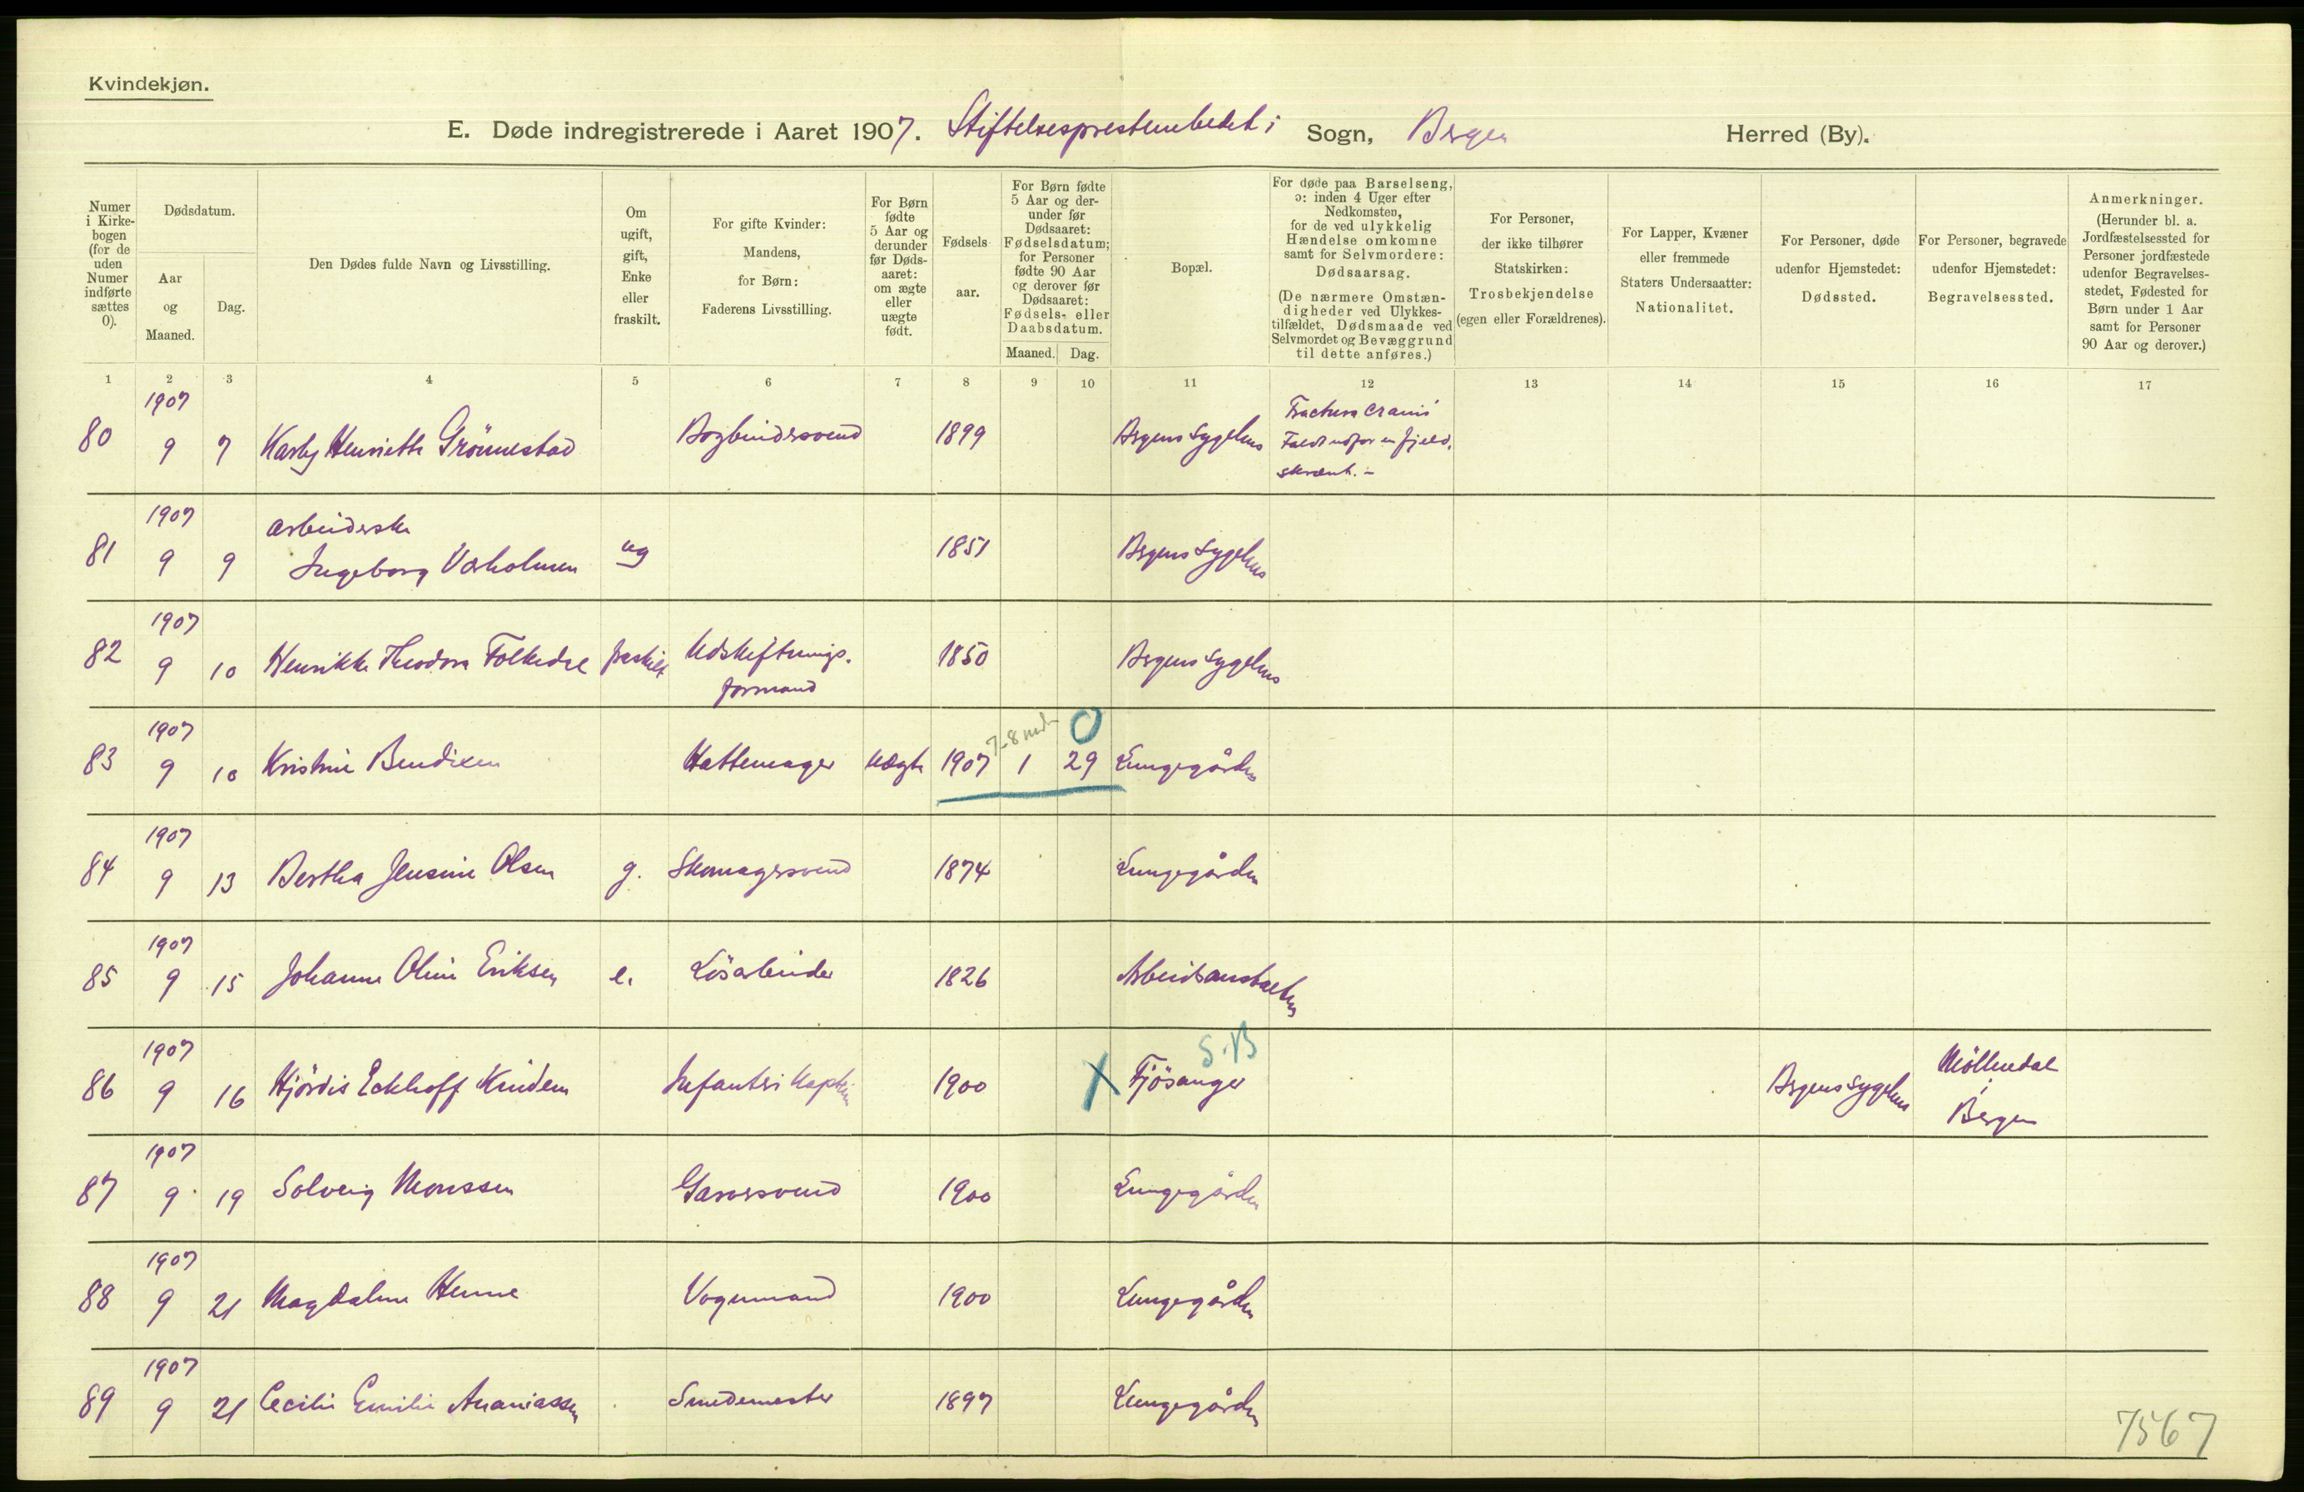 Kvindekjøn.
E. Døde indregistrerede i Aaret 1907. Stiftelsesprestembedet i Sogn, Bergen Herred (By).
Numer i Kirkebogen (for de uden Numer indførte sættes 0).
Dødsdatum.
Aar og Maaned.
Dag.
Den Dødes fulde Navn og Livsstilling.
Om ugift, gift, Enke eller fraskilt.
For gifte Kvinder: Mandens, for Børn: Faderens Livsstilling.
For Børn fødte 5 Aar og derunder før Dødsaaret: om ægte eller uægte født.
Fødselsaar.
For Børn fødte 5 Aar og derunder før Dødsaaret: Fødselsdatum; for Personer fødte 90 Aar og derover før Dødsaaret: Fødsels- eller Daabsdatum.
Maaned. Dag.
Bopæl.
For døde paa Barselseng, ɔ: inden 4 Uger efter Nedkomsten, for de ved ulykkelig Hændelse omkomne samt for Selvmordere: Dødsaarsag.
(De nærmere Omstændigheder ved Ulykkestilfældet, Dødsmaade ved Selvmordet og Bevæggrund til dette anføres.)
For Personer, der ikke tilhører Statskirken: Trosbekjendelse (egen eller Forældrenes).
For Lapper, Kvæner eller fremmede Staters Undersaatter: Nationalitet.
For Personer, døde udenfor Hjemstedet: Dødssted.
For Personer, begravede udenfor Hjemstedet: Begravelsessted.
Anmerkninger. (Herunder bl. a. Jordfæstelsessted for Personer jordfæstede udenfor Begravelsesstedet, Fødested for Børn under 1 Aar samt for Personer 90 Aar og derover.)
1 2 3 4 5 6 7 8 9 10 11 12 13 14 15 16 17
80 1907 9 7 Henriette Grönnestad Bogbindersvend 1899 Bergens Sygehus Fractura cranii Faldt udfor en fjeldskrænt. –
81 1907 9 9 Arbeiderske Ingeborg Varholmen ug 1851 Bergens Sygehus
82 1907 9 10 Henrikke Theodora Folkedal fraskilt Udskiftningsformand 1850 Bergens Sygehus
83 1907 9 10 Kristine Bendixen Hattemager Uægte 1907 7-8 md 1 29 0 Lungegården
84 1907 9 13 Bertha Jensine Olsen g. Skomagersvend 1874 Lungegården
85 1907 9 15 Johanne Oline Eriksen e. Lösarbeider 1826 Arbeidsanstalten
86 1907 9 16 Hjördis Eckhoff Kindem Infanteri Kaptein 1900 X S.B Fjösanger Bergens Sygehus Möllendal i Bergen
87 1907 9 19 Solveig Monssen Garversvend 1900 Lungegården
88 1907 9 21 Magdalene Henne Vognmand 1900 Lungegården
89 1907 9 21 Cecilie Emilie Ananiassen Smedemester 1897 Lungegården
7567